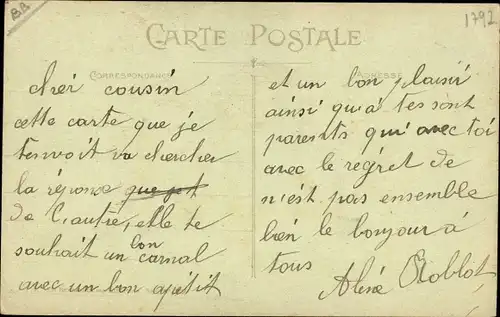 BA
1792
CARTE POSTALE
CORRESPONDANCE
ADRESSE
cher cousin
cette carte que je
t'envoit va chercher
la réponse
de l'autre, elle te
souhait un bon carnal
avec un bon apétit
et un bon plaisir
ainsi qu'a tes sont
parents qui avec toi
avec le regret de
n'eist pas ensemble
bien le bonjour á
tous
Roblot